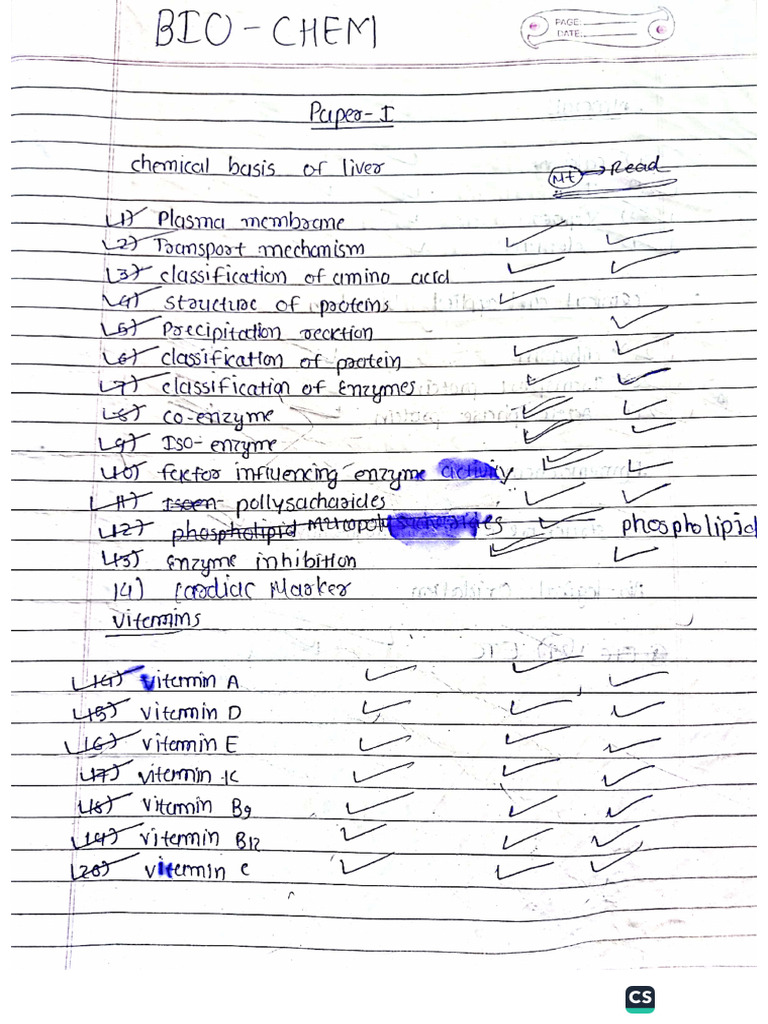 BIO-CHEM
PAGE:
DATE:
Paper-I
chemical basis of liver
Mt → Read
1) Plasma membrane
2) Transport mechanism
3) classification of amino acid
4) structure of proteins
5) Precipitation recktion
6) classification of protein
7) classification of Enzymes
8) co-enzyme
9) ISO-enzyme
10) factor influencing enzyme activity
11) Isoen- pollysacharides
12) phospholipid phospholipid
13) enzyme inhibition
14) Cardiac Marker
vitemins
14) vitemin A
15) vitemin D
16) vitemin E
17) vitemin K
18) vitemin B9
19) vitemin B12
20) vitemin C
CS